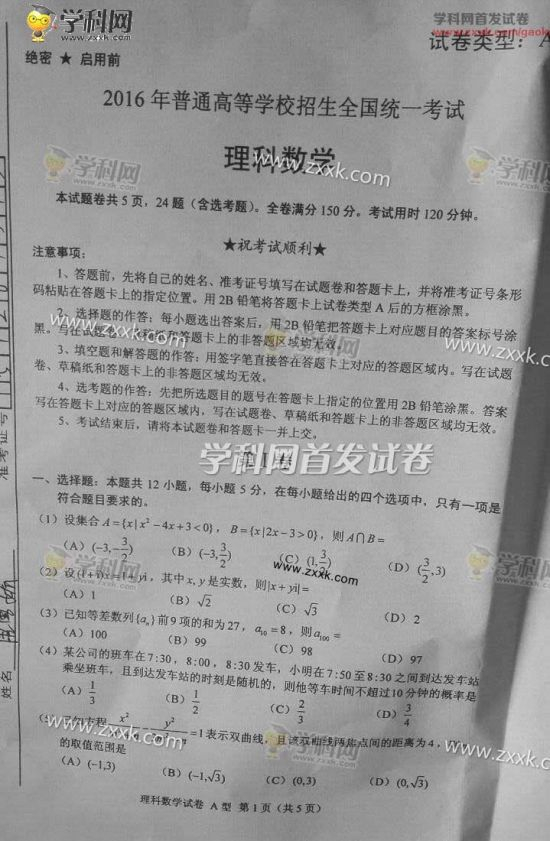 学科网
学科网首发试卷
https://www.zxxk.com/gaok
试卷类型：A
绝密 ★ 启用前
2016 年普通高等学校招生全国统一考试
学科网
理科数学
www.zxxk.com
本试题卷共 5 页，24 题（含选考题）。全卷满分 150 分。考试用时 120 分钟。
★祝考试顺利★
注意事项：
1、答题前，先将自己的姓名、准考证号填写在试题卷和答题卡上，并将准考证号条形
码粘贴在答题卡上的指定位置。用 2B 铅笔将答题卡上试卷类型 A 后的方框涂黑。
2、选择题的作答：每小题选出答案后，用 2B 铅笔把答题卡上对应题目的答案标号涂
黑。写在试题卷、草稿纸和答题卡上的非答题区域均无效。
3、填空题和解答题的作答：用签字笔直接答在答题卡上对应的答题区域内。写在试题
卷、草稿纸和答题卡上的非答题区域均无效。
4、选考题的作答：先把所选题目的题号在答题卡上指定的位置用 2B 铅笔涂黑。答案
写在答题卡上对应的答题区域内，写在试题卷、草稿纸和答题卡上的非答题区域均无效。
5、考试结束后，请将本试题卷和答题卡一并上交。
学科网首发试卷
一、选择题：本题共 12 小题，每小题 5 分，在每小题给出的四个选项中，只有一项是
符合题目要求的。
（1）设集合 A={x|x²-4x+3<0}，B={x|2x-3>0}，则 A∩B=
（A）(-3,-3/2) （B）(-3,3/2) （C）(1,3/2) （D）(3/2,3)
（2）设(1+i)x=1+yi，其中 x,y 是实数，则|x+yi|=
（A）1 （B）√2 （C）√3 （D）2
（3）已知等差数列{aₙ}前 9 项的和为 27，a₁₀=8，则 a₁₀₀=
（A）100 （B）99 （C）98 （D）97
（4）某公司的班车在 7:30，8:00，8:30 发车，小明在 7:50 至 8:30 之间到达发车站
乘坐班车，且到达发车站的时刻是随机的，则他等车时间不超过 10 分钟的概率是
（A）1/3 （B）1/2 （C）2/3 （D）3/4
知方程 =1 表示双曲线，且该双曲线两焦点间的距离为 4，
的取值范围是
（A）(-1,3) （B）(-1,√3) （C）(0,3) （D）(0,√3)
理科数学试卷 A 型 第 1 页（共 5 页）
准考证号
姓名